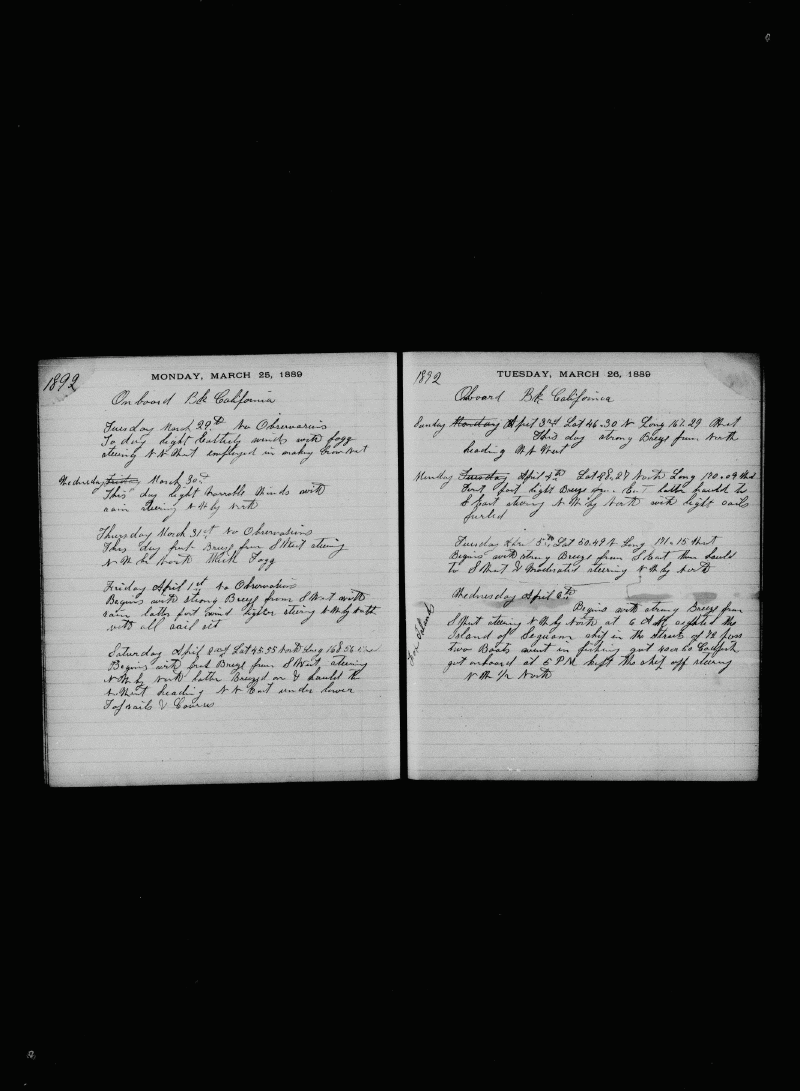 1892
MONDAY, MARCH 25, 1889
On board Bk California
Tuesday March 29th No Observations
To day light winds with fogg
steering N N West employed in making
Wednesday Friday March 30th
This day light Varrable Winds with
rain steering N W by North
Thursday March 31st No Observations
This day fresh Breeze from S West steering
N W by North Thick Fogg
Friday April 1st No Observation
Begins with strong Breeze from S West with
rain latter part wind lighter steering N W by North
with all sail set
Saturday April 2nd Lat 45.55 North Long 168.56
Begins with fresh Breeze from S West, steering
N W by North latter Breezed on & hauled to
N West heading N N East under lower
Topsails & Courses
1892
TUESDAY, MARCH 26, 1889
Onboard Bk California
Sunday Monday April 3rd Lat 46.30 N Long 167.29 West
This day strong Breeze from North
heading W N West
Monday Tuesday April 4th Lat 48.27 North Long 170.09 West
First part light Breeze from East latter hauled to
S East steering N W by North with light sails
furled
Tuesday 5th Lat 50.48 N Long 171.15 West
Begins with strong Breeze from S East then hauld
to S West & Moderated steering N W by North
Wednesday April 6th
Begins with strong Breeze from
S West steering N W by North at 6 A M sighted the
Island of Seguam ship in the Streets of 72 pass
two Boats went in fishing got 40 or 60 Codfish
got onboard at 5 P.M. kept the ship off steering
N W 1/2 North